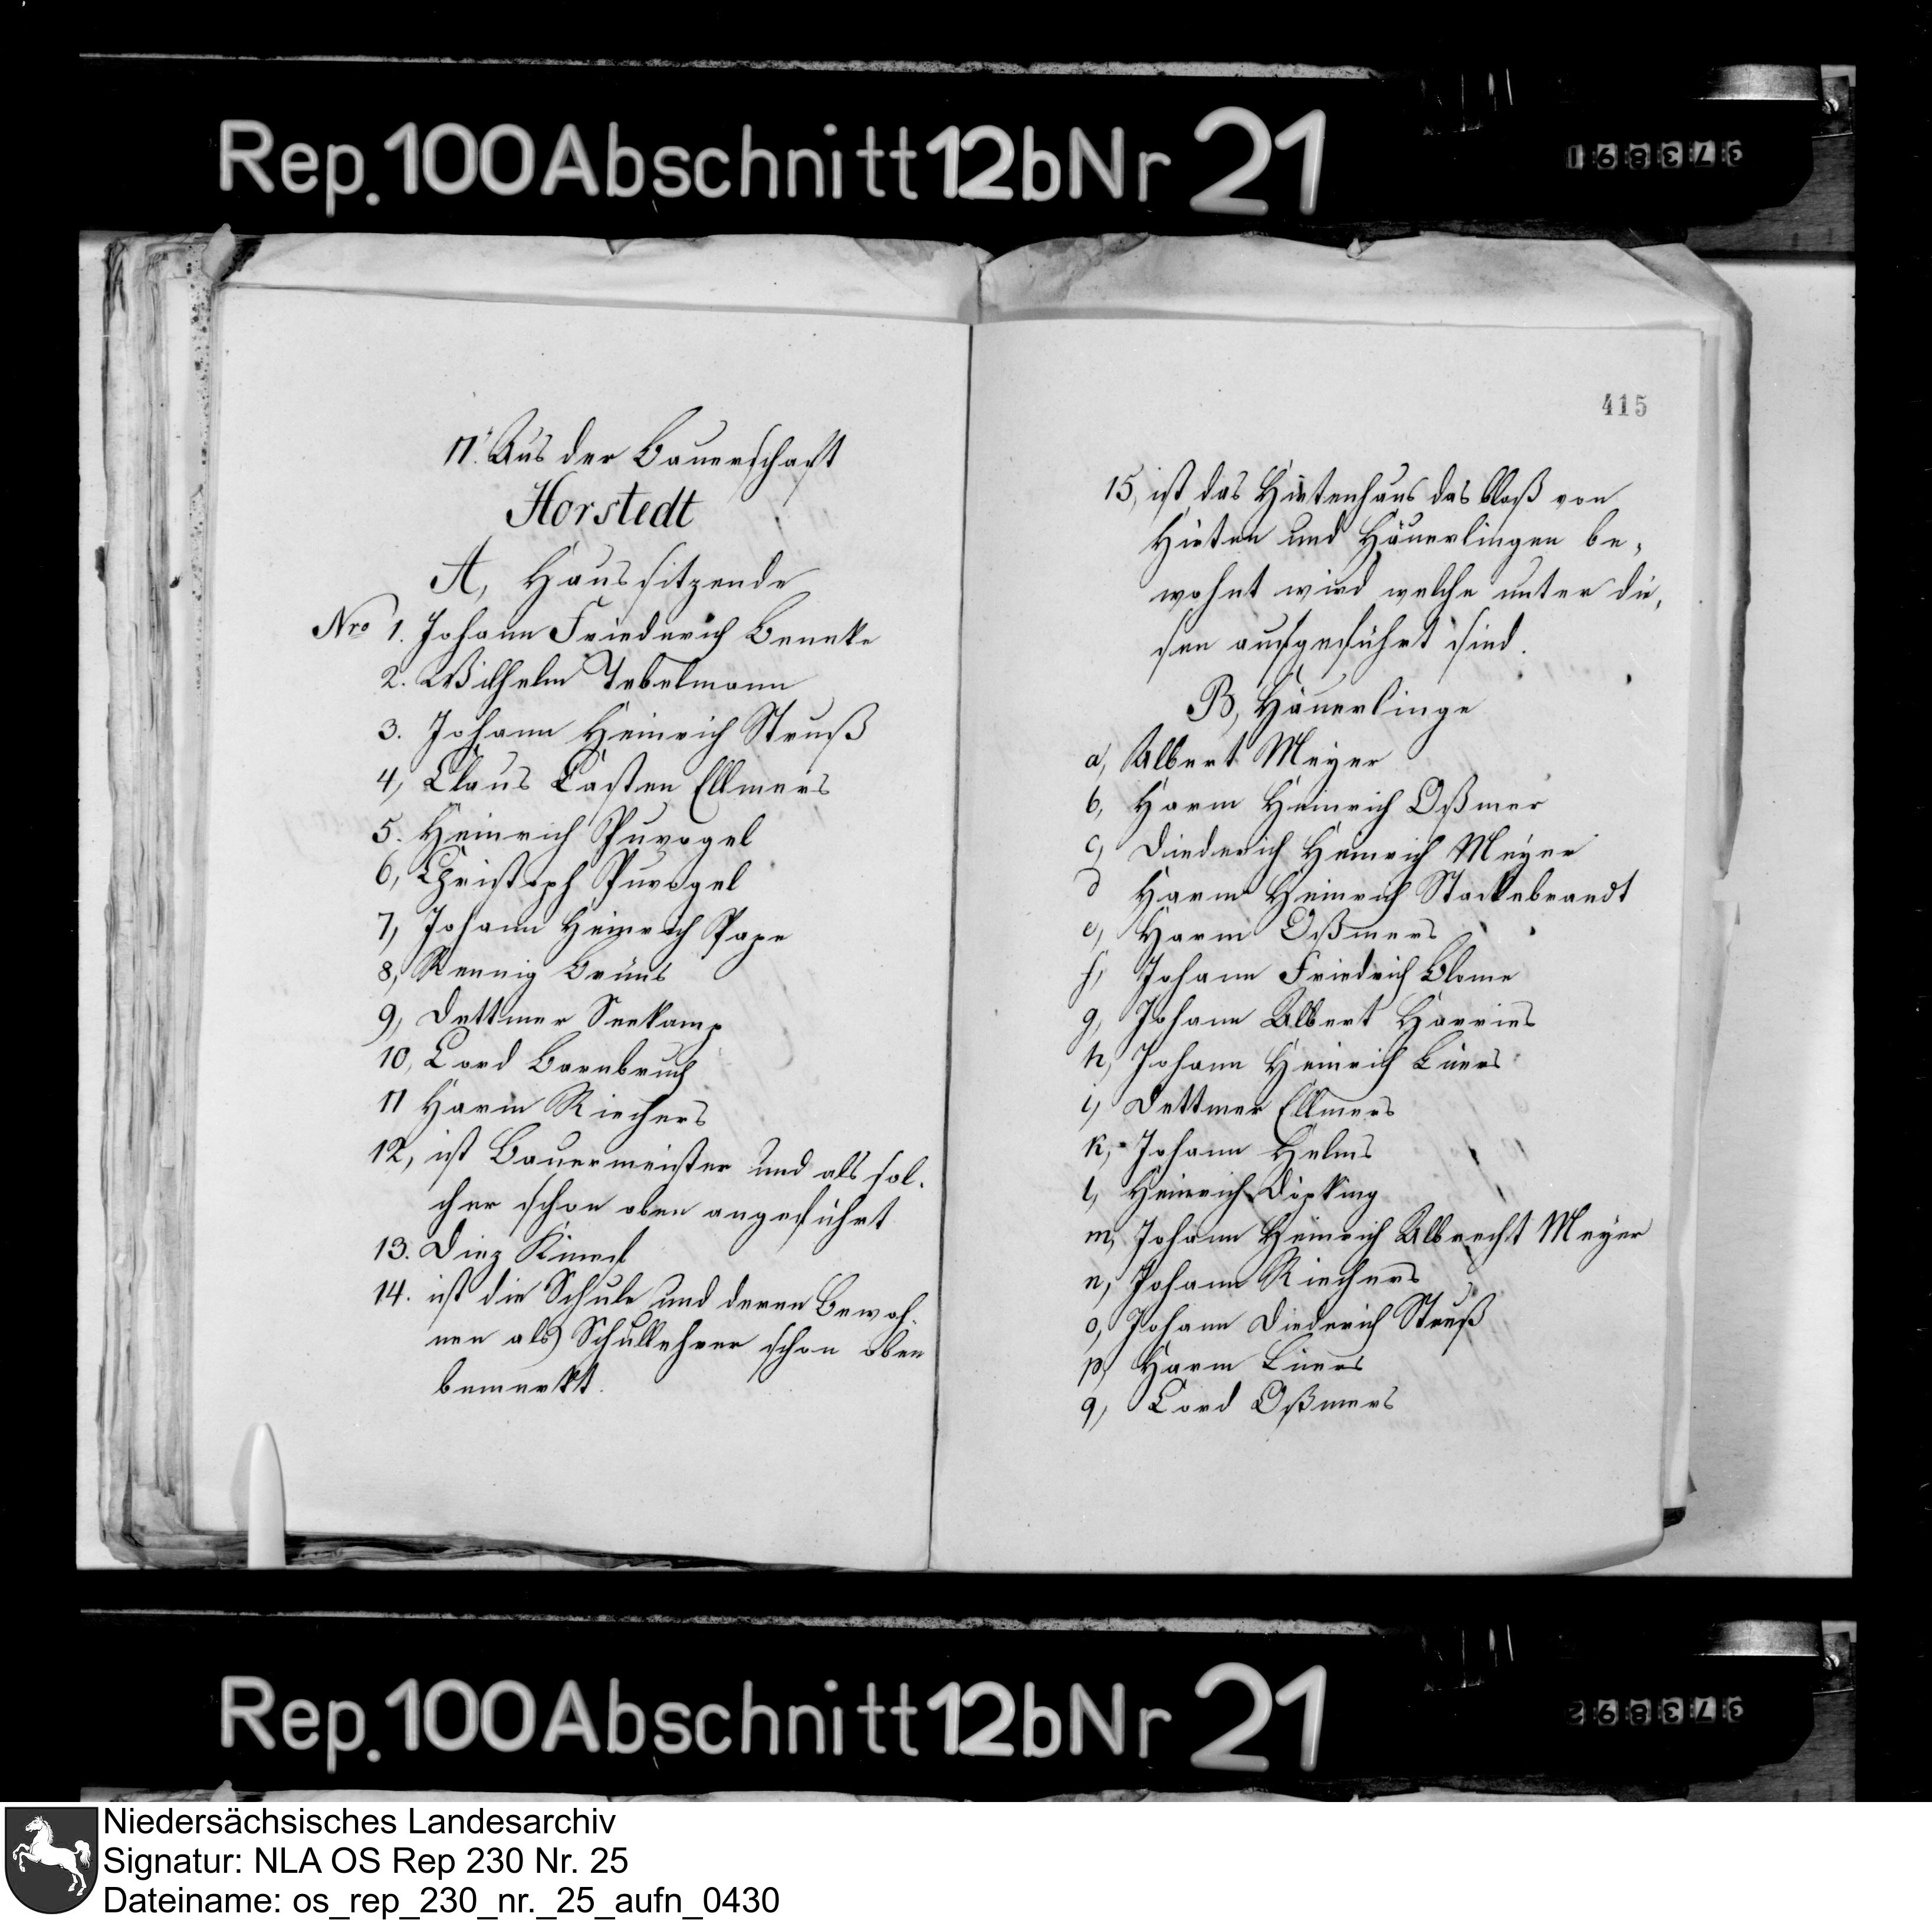 Rep. 100 Abschnitt 12b Nr 21
373891
11. Aus der Bauerschaft
Horstedt
A, Haussitzende
Nro 1. Johann Friederich Beneke
2. Wilhelm Tebelmann
3. Johann Heinrich Struß
4, Claus Casten Ellmers
5. Heinrich Puvogel
6, Christoph Puvogel
7, Johann Heinrich Pape
8, Rennig Brüns
9, Dettmer Seekamp
10, Cord Barnbruch
11 Harm Riechers
12, ist Bauermeister und als sol-
cher schon oben angeführt
13. Dierk
14. ist die Schule und deren Bewoh-
ner als Schullehrer schon oben
bemerkt.
415
15, ist das Hirtenhaus das bloß von
Hirten und Häuerlingen be-
wohnt wird welche unter die-
sen aufgeführt sind.
B, Häuerlinge
a, Albert Meyer
b, Harm Heinrich Oßmer
c, Diederich Heinrich Meyer
d Harm Heinrich Stackebrandt
e, Harm Oßmers
f, Johann Friedrich Blome
g, Johann Albert Harries
h, Johann Heinrich Lüers
i, Dettmer Ellmers
k, Johann Helms
l, Heinrich Döpking
m, Johann Heinrich Albrecht Meyer
n, Johann Riechers
o, Johann Diederich Struß
p, Harm Lüers
q, Cord Oßmers
Rep. 100 Abschnitt 12b Nr 21
373892
Niedersächsisches Landesarchiv
Signatur: NLA OS Rep 230 Nr. 25
Dateiname: os_rep_230_nr._25_aufn_0430